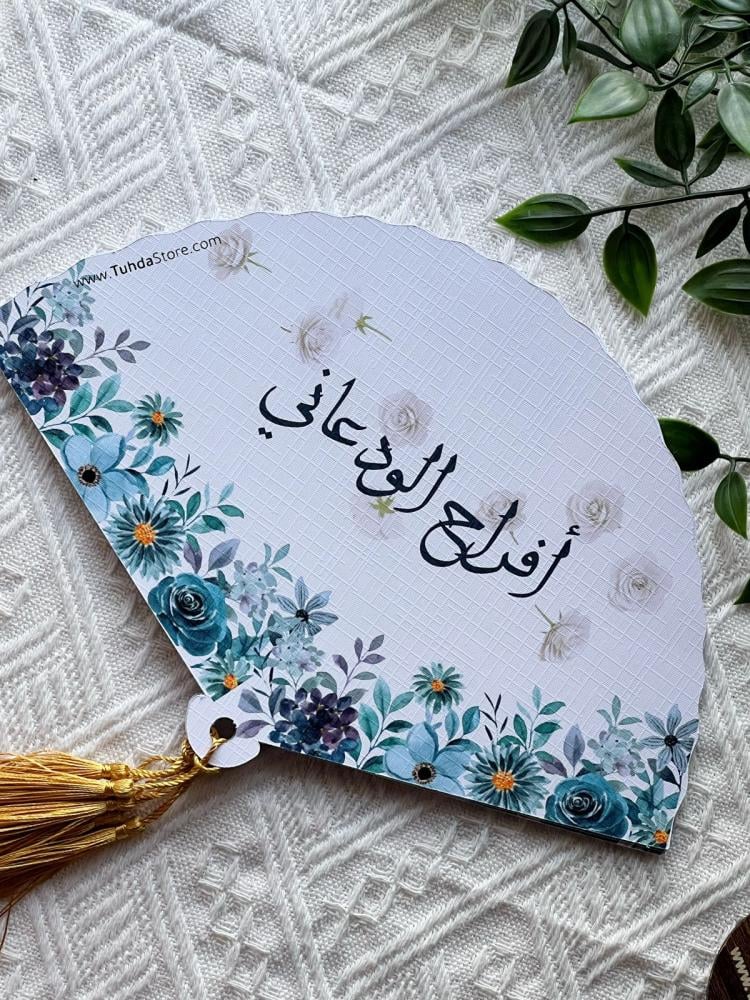 www.TuhdaStore.com
أفراح الودعاني